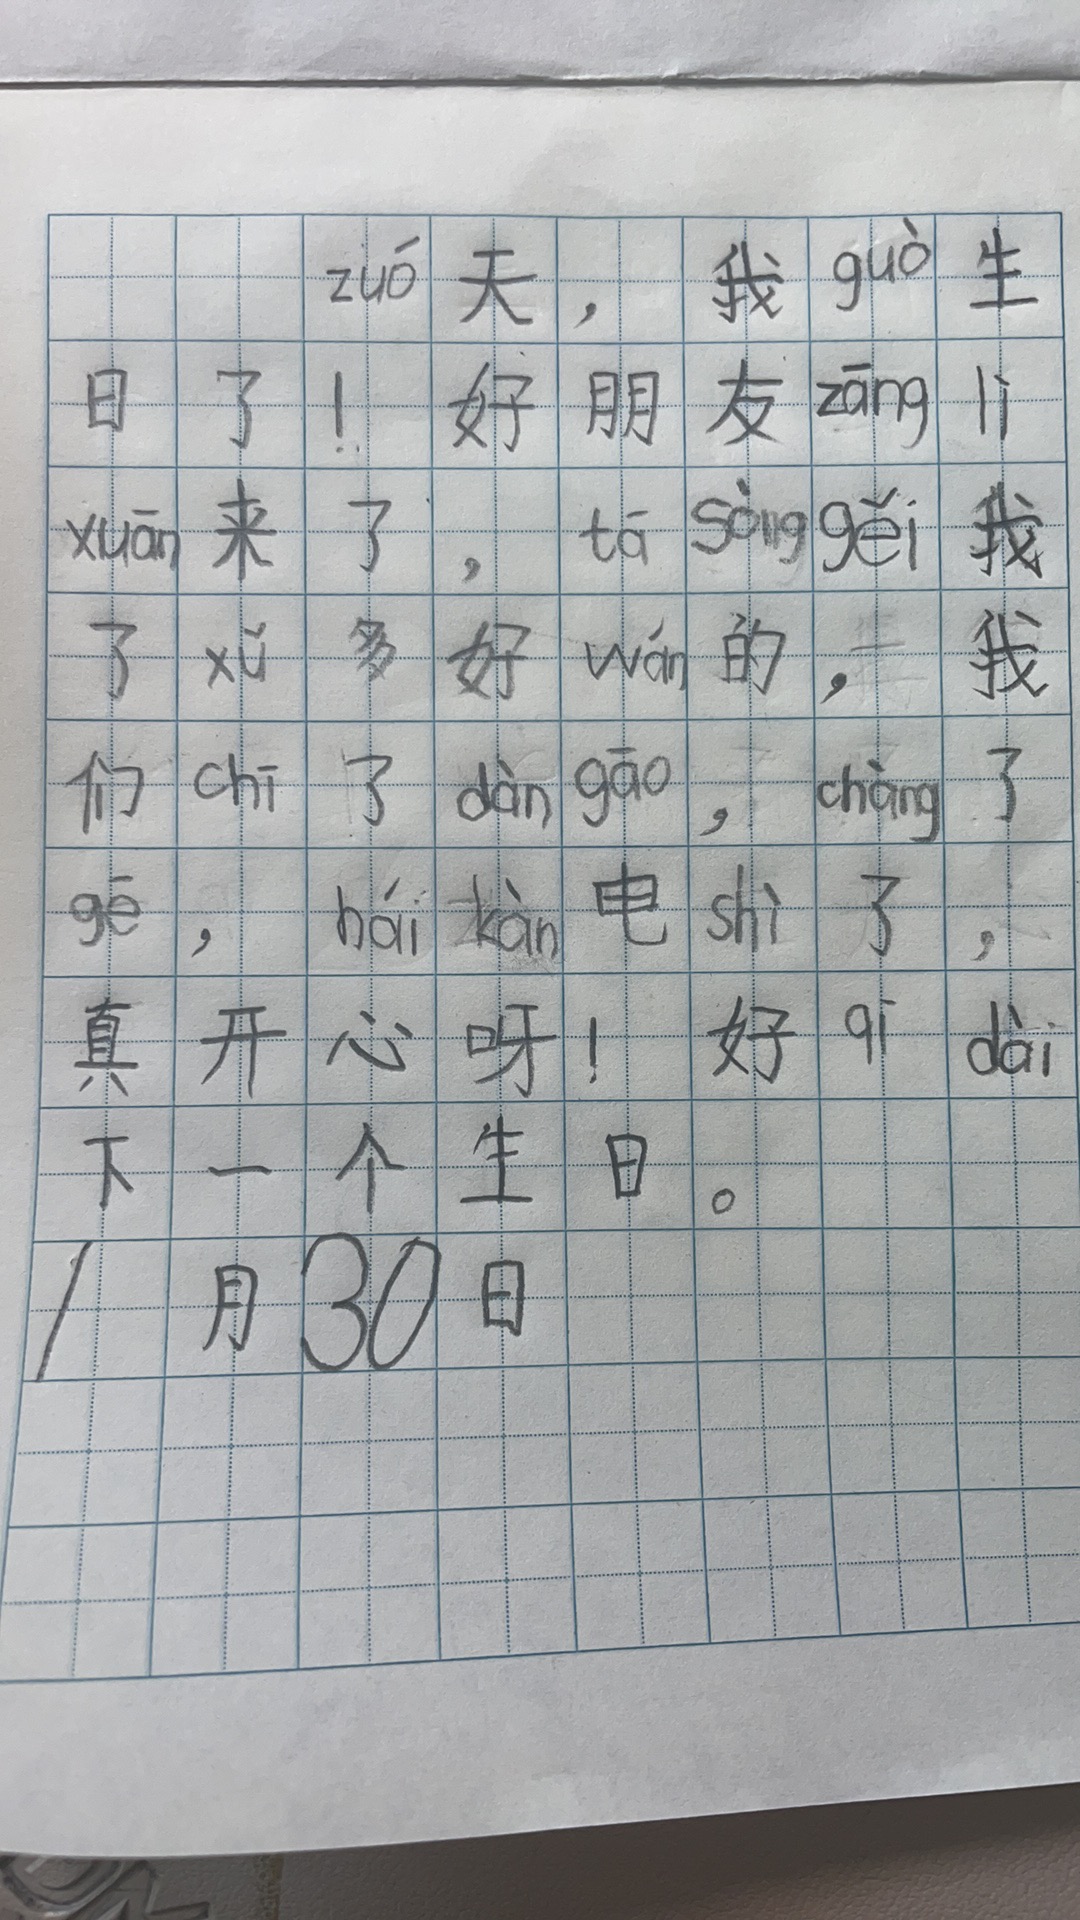 zuó天，我guò生
日了！好朋友zāng lì
xuān来了，tā sòng gěi我
了xǔ多好wán的，我
们chī了dàn gāo，chàng了
gē，hái kàn电shì了，
真开心呀！好qī dài
下一个生日。
1月30日